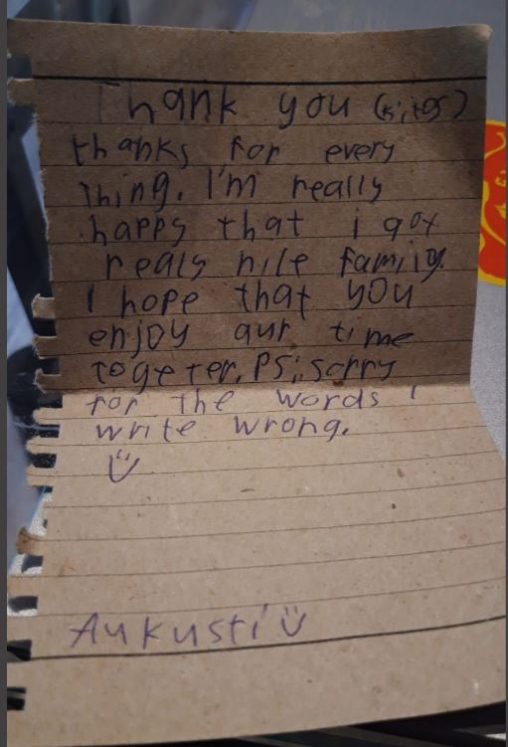 Thank you (kiitos)
thanks for every
thing. I'm really
happy that i got
realy nile family.
I hope that you
enjoy aur time
togeter. PS: sorry
for the words I
write wrong.
Aukusti